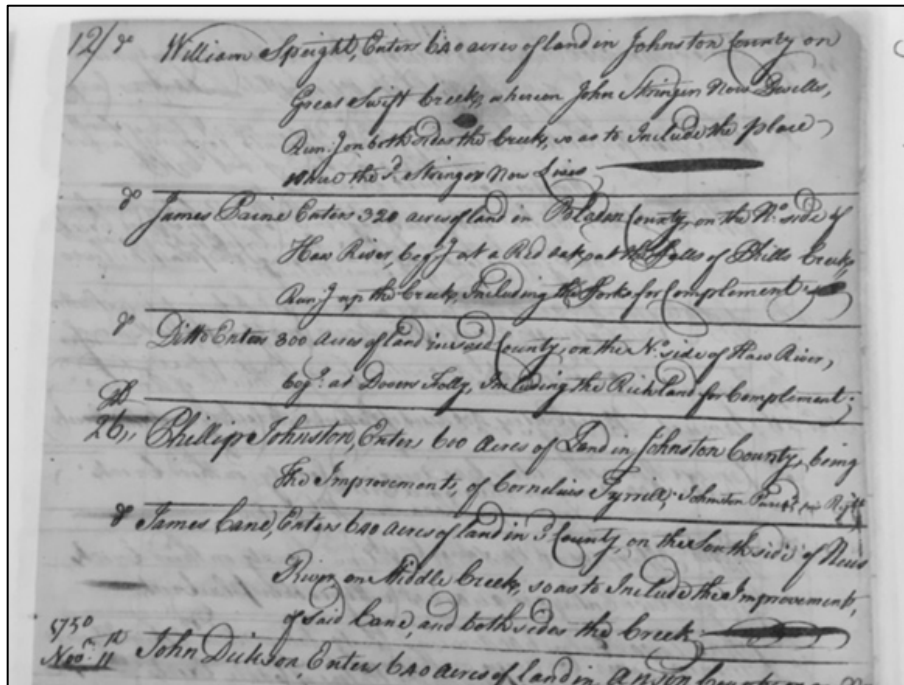 12/ do William Speight, Enters 640 acres of land in Johnston County on
Great Swift Creek, whereon John Stringer Now Dwells,
Run.g on both sides the Creek, so as to Include the place
where the sd. Stringer Now Lives
do James Paine Enters 320 acres of land in Bladen County, on the No. side of
Haw River, beg.g at a Red oak, at the falls of Phills Creek,
Run.g up the Creek, Including the Forks for Complement
do Ditto Enters 300 Acres of land in said County, on the No. side of Haw River,
beg.g at Folly, Including the Rich land for Complement
26,, Phillip Johnston, Enters 600 Acres of Land in Johnston County, being
the Improvements, of Cornelius Tyrrill, Johnston
do James Cane, Enters 640 acres of land in sd. County, on the South side of Neus
River, on Middle Creek, so as to Include the Improvements,
of said Cane, and both sides the Creek
1750
Nov.r 11th John Dickson, Enters 640 acres of land in Anson County